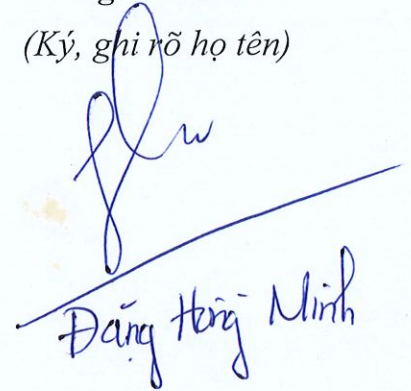 (Ký, ghi rõ họ tên)
Đặng Hồng Minh